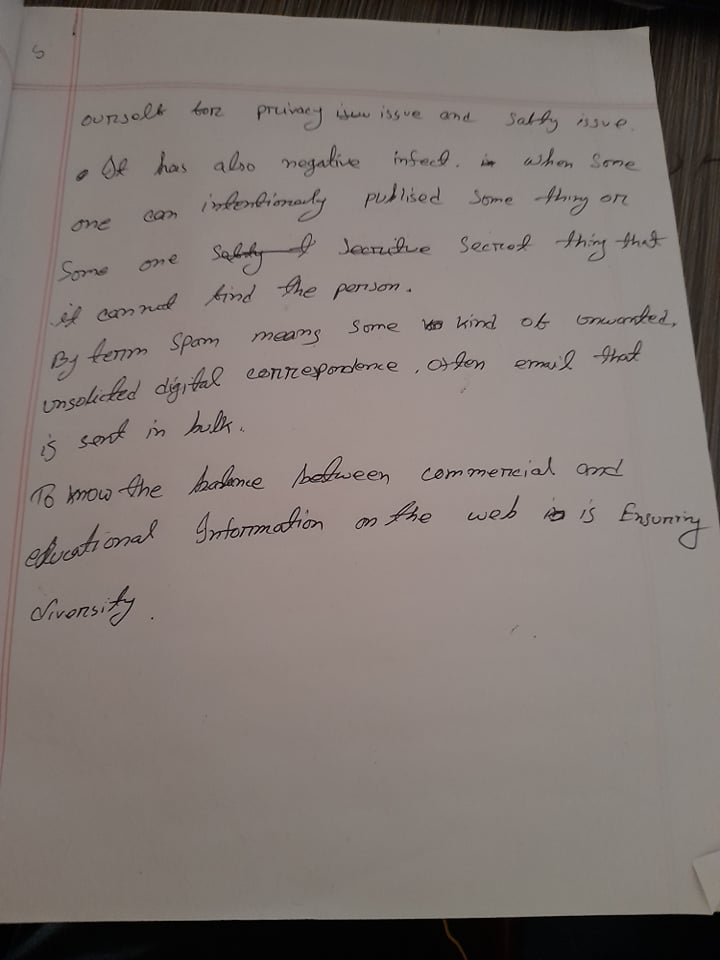 5
ourself for privacy issue and safty issue.
• It has also negative infect. when some
one can intentionaly publised some thing or
some one secret thing that
it cannot find the person.
By term spam means some kind of unwanted,
unsolicted digital correspondence, often email that
is sent in bulk.
To know the balance between commercial and
educational Information on the web is Ensuring
diversity.